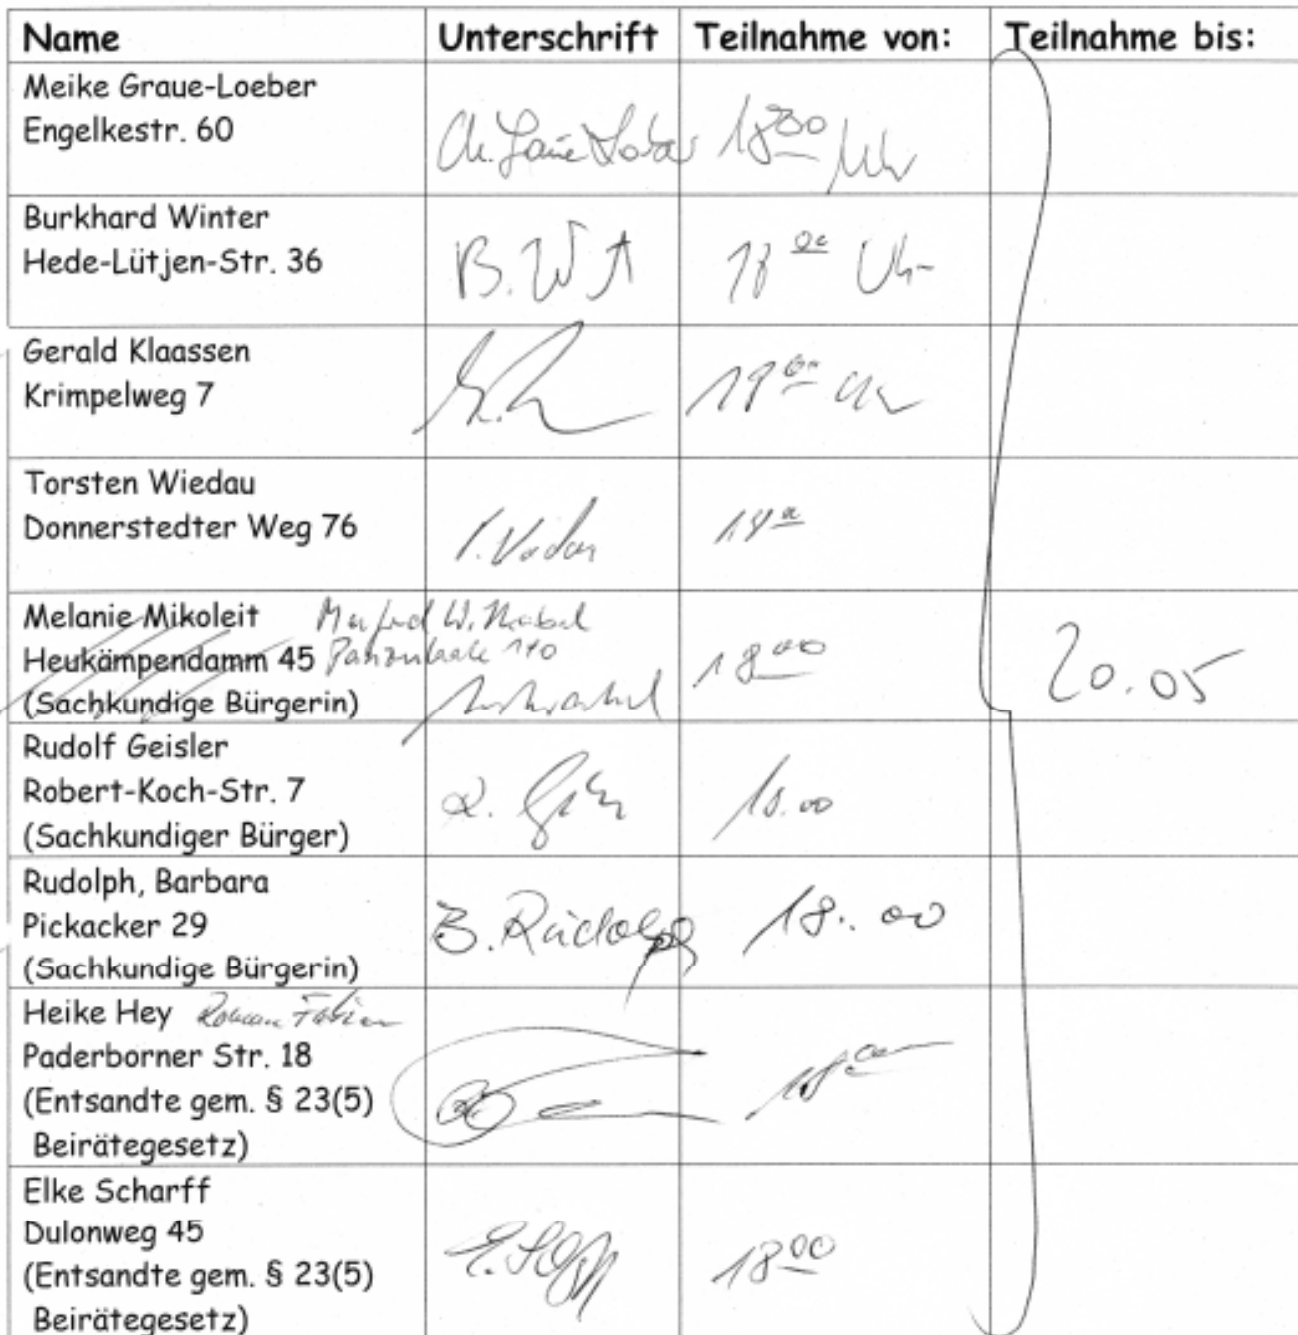 Name Unterschrift Teilnahme von: Teilnahme bis:
Meike Graue-Loeber
Engelkestr. 60
18 00 Uhr
Burkhard Winter
Hede-Lütjen-Str. 36
B. 18 00 Uhr
Gerald Klaassen
Krimpelweg 7
Uhr
Torsten Wiedau
Donnerstedter Weg 76
Melanie Mikoleit Manfred W.
Heukämpendamm 45 110
(Sachkundige Bürgerin)
18 00
20.05
Rudolf Geisler
Robert-Koch-Str. 7
(Sachkundiger Bürger)
R. 18.00
Rudolph, Barbara
Pickacker 29
(Sachkundige Bürgerin)
B. Rudolph 18.00
Heike Hey Roman Fabian
Paderborner Str. 18
(Entsandte gem. § 23(5)
Beirätegesetz)
18 00
Elke Scharff
Dulonweg 45
(Entsandte gem. § 23(5)
Beirätegesetz)
E. 18 00